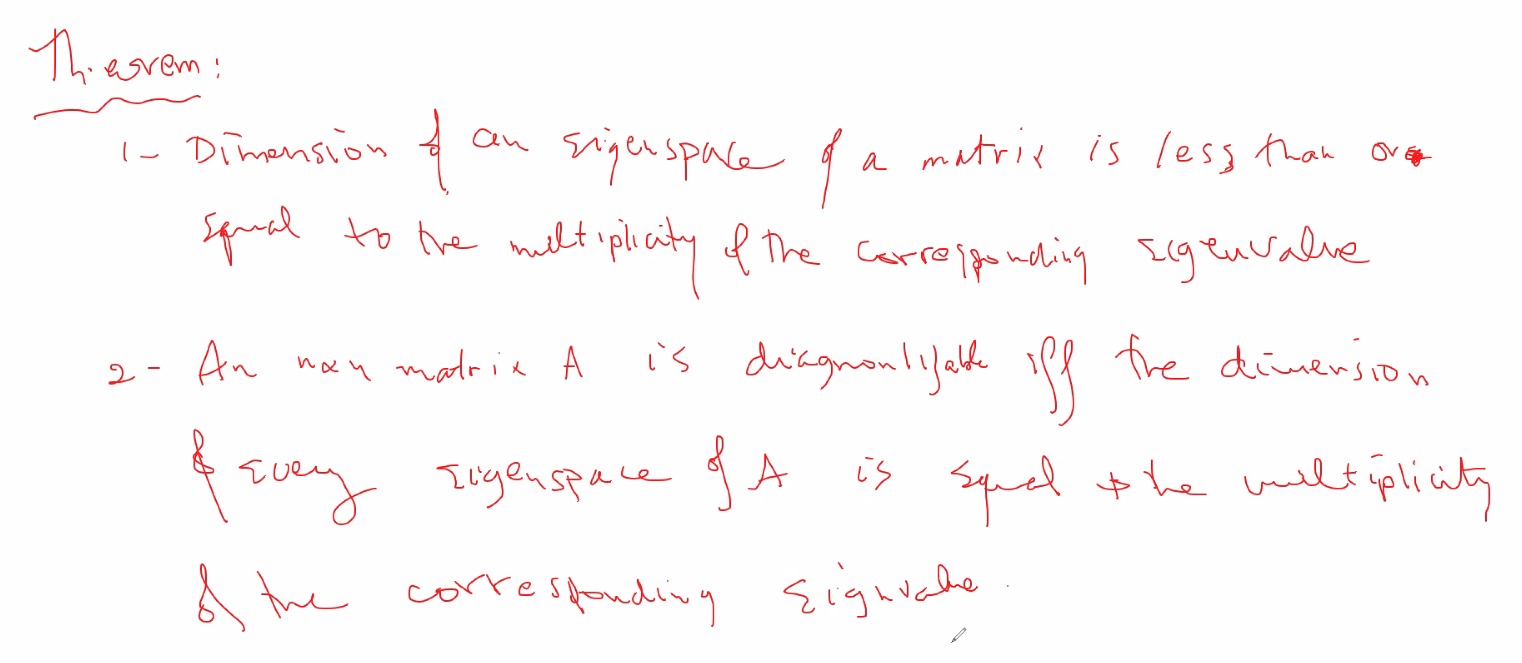 Theorem:
1- Dimension of an Eigenspace of a matrix is less than or
Equal to the multiplicity of the corresponding Eigenvalue
2- An nxn matrix A is diagnonlizable iff the dimension
of Every Eigenspace of A is Equal to the multiplicity
of the corresponding Eignvalue.